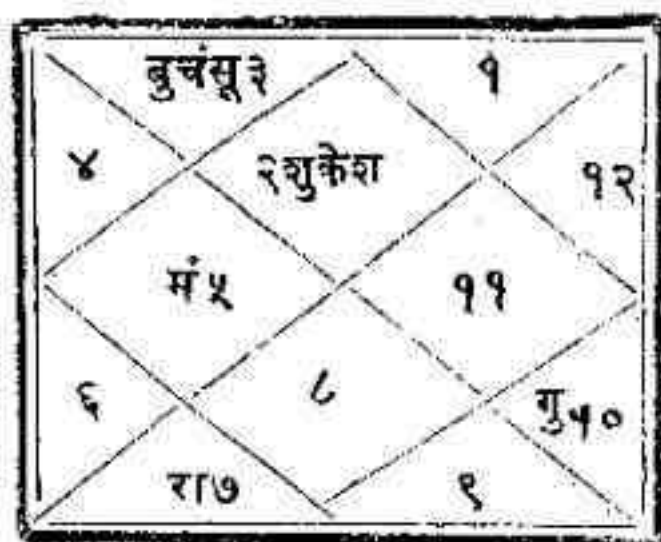 बुचंसू३
१
४
२शुकेश
१२
मं५
११
६
८
गु१०
रा७
९